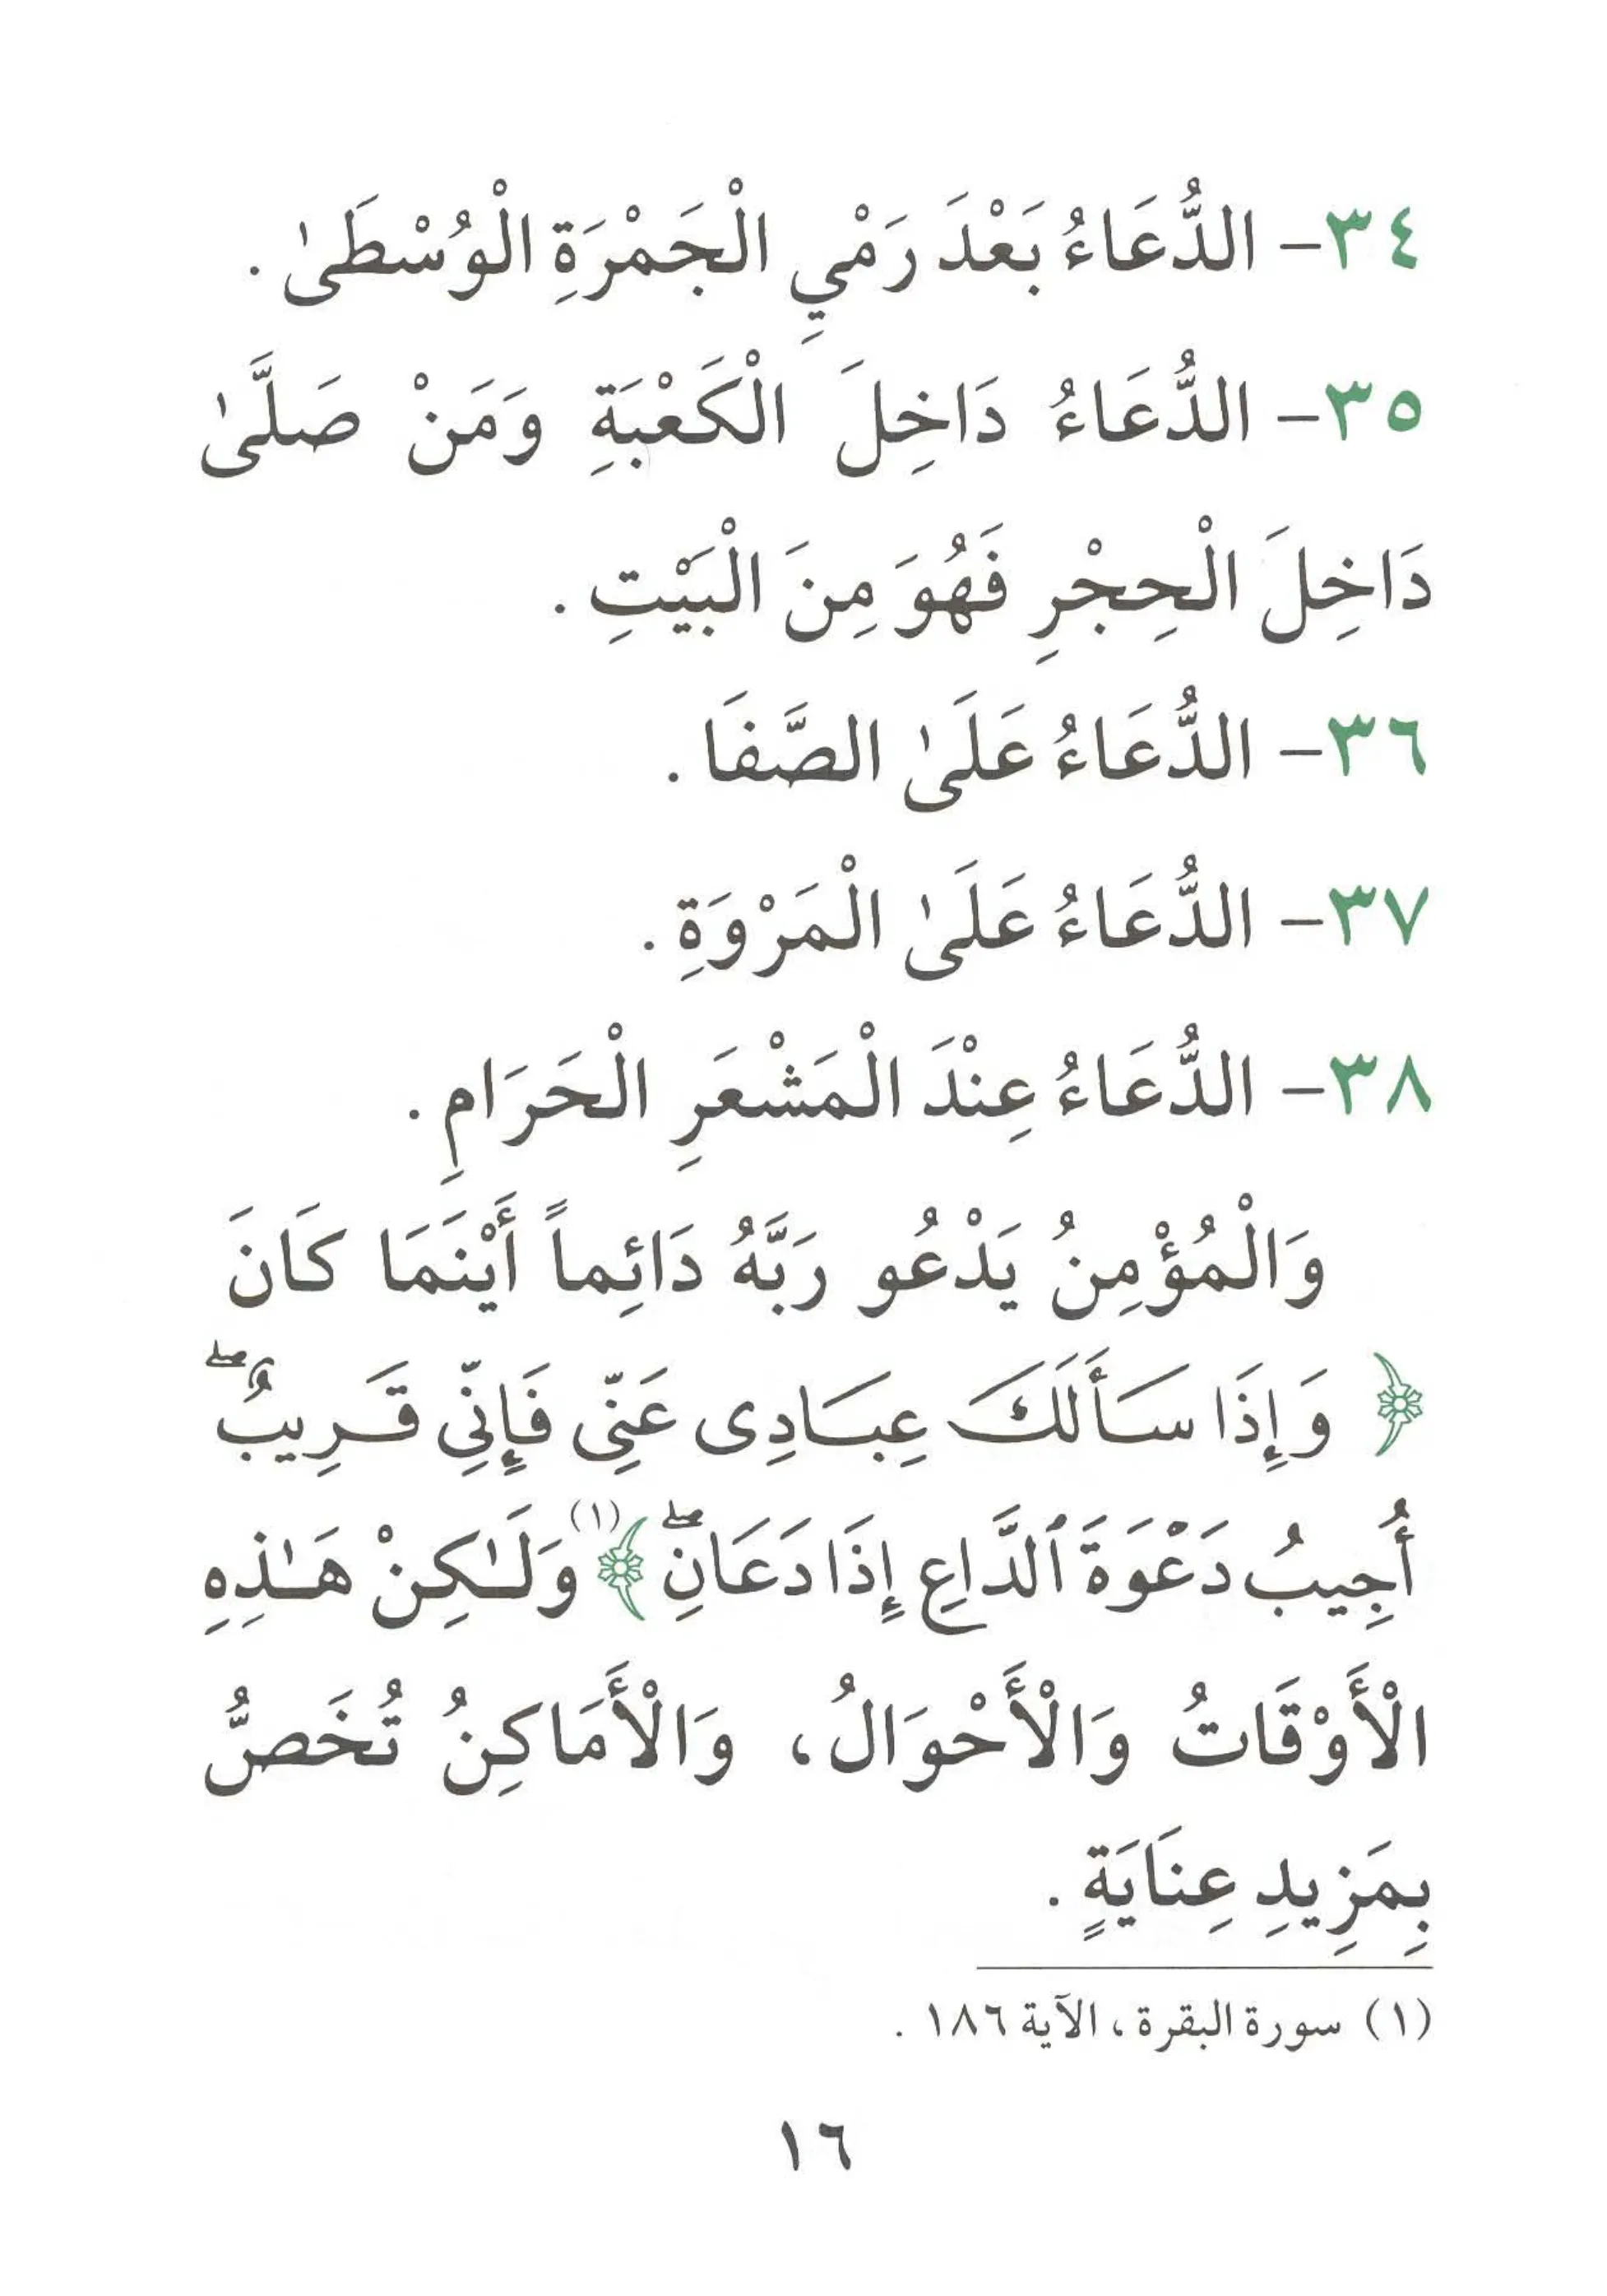 ٣٤- الدُّعَاءُ بَعْدَ رَمْيِ الْجَمْرَةِ الْوُسْطَىٰ .
٣٥- الدُّعَاءُ دَاخِلَ الْكَعْبَةِ وَمَنْ صَلَّىٰ
دَاخِلَ الْحِجْرِ فَهُوَ مِنَ الْبَيْتِ .
٣٦- الدُّعَاءُ عَلَىٰ الصَّفَا .
٣٧- الدُّعَاءُ عَلَىٰ الْمَرْوَةِ .
٣٨- الدُّعَاءُ عِنْدَ الْمَشْعَرِ الْحَرَامِ .
وَالْمُؤْمِنُ يَدْعُو رَبَّهُ دَائِماً أَيْنَمَا كَانَ
﴿ وَإِذَا سَأَلَكَ عِبَادِى عَنِّى فَإِنِّى قَرِيبٌۖ
أُجِيبُ دَعْوَةَ ٱلدَّاعِ إِذَا دَعَانِۖ ﴾(١) وَلَـٰكِنْ هَـٰذِهِ
الْأَوْقَاتُ وَالْأَحْوَالُ، وَالْأَمَاكِنُ تُخَصُّ
بِمَزِيدِ عِنَايَةٍ .
(١) سورة البقرة، الآية ١٨٦ .
١٦